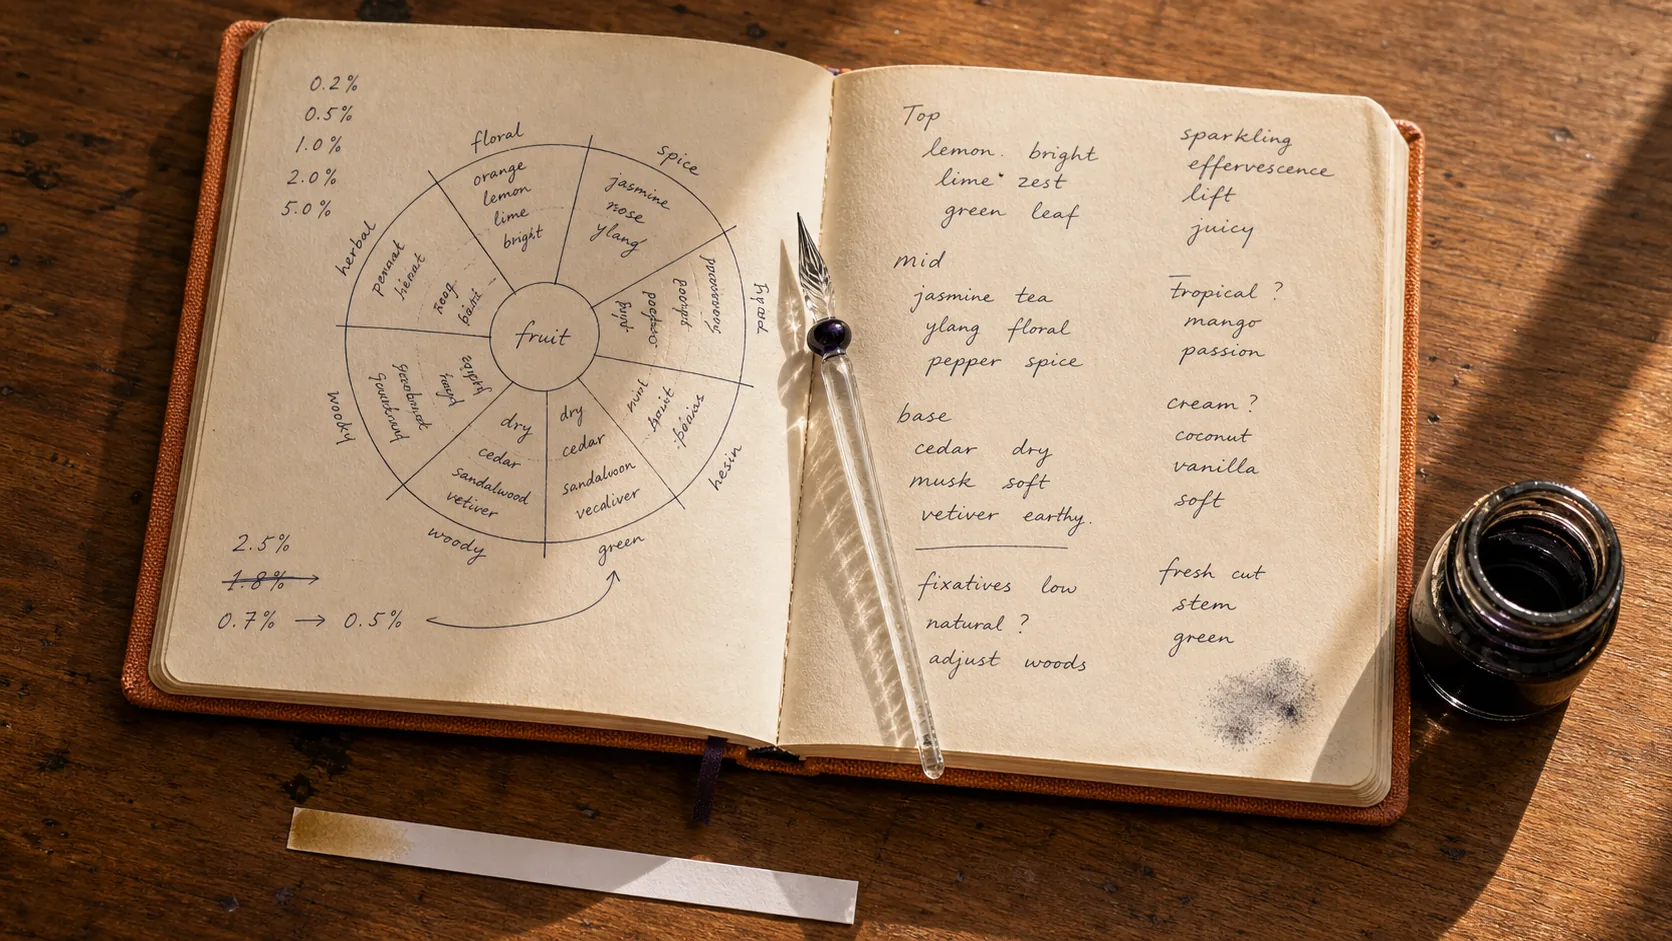 0.2%
0.5%
1.0%
2.0%
5.0%
floral
orange
lemon
lime
bright
spice
jasmine
rose
ylang
herbal
fruit
wooky
dry
cedar
sandalwood
vetiver
woody
dry
cedar
sandalvoon
vecaliver
green
hesin
2.5%
1.8%
0.7% → 0.5%
Top
lemon. bright
lime zest
green leaf
mid
jasmine tea
ylang floral
pepper spice
base
cedar dry
musk soft
vetiver earthy.
fixatives low
natural ?
adjust woods
sparkling
effervescence
lift
juicy
Tropical ?
mango
passion
cream ?
coconut
vanilla
soft
fresh cut
stem
green